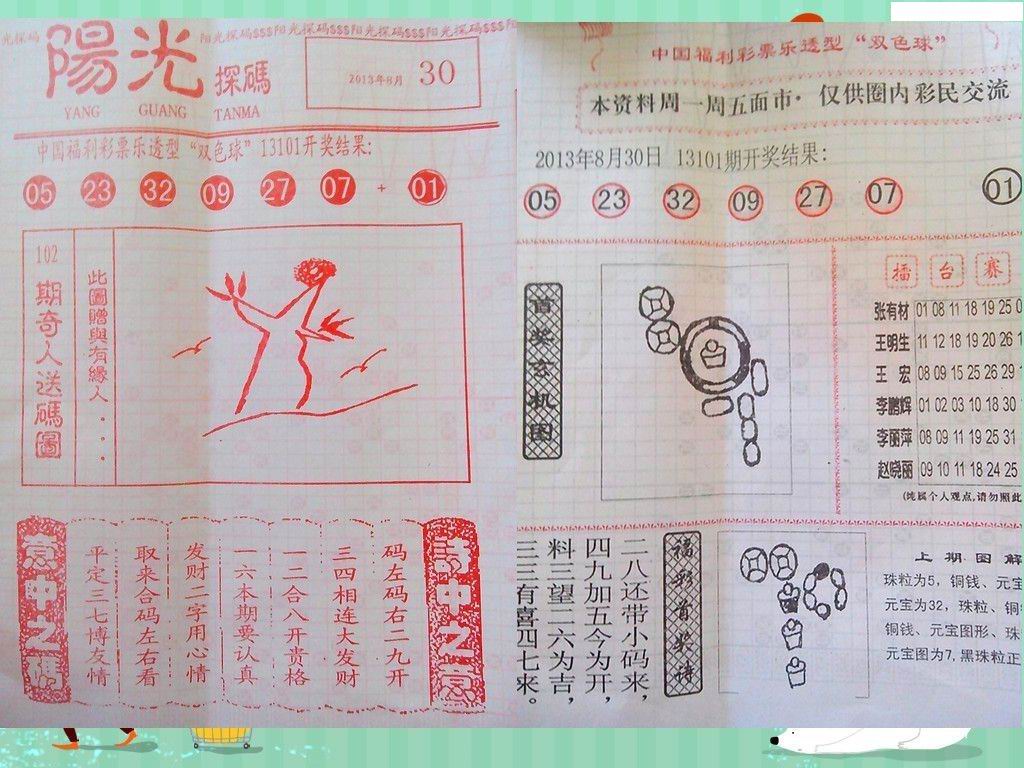 光探码 阳光探码$$$阳光探码$$$阳光探码$$$阳光探码$$$
陽光
探碼
YANG GUANG TANMA
2013年8月 30
中国福利彩票乐透型“双色球”13101开奖结果:
05 23 32 09 27 07 + 01
102期奇人送碼圖
此圖贈與有緣人....
码左码右二九开
三四相连大发财
一二合八开贵格
一六本期要认真
发财二字用心情
取来合码左右看
平定三七博友情
中国福利彩票乐透型“双色球”
本资料周一周五面市·仅供圈内彩民交流
2013年8月30日 13101期开奖结果:
05 23 32 09 27 07 01
首奖玄机图
擂台赛
张有材 01 08 11 18 19 25 0
王明生 11 12 18 19 20 26 1
王宏 08 09 15 25 26 29 1
李鹏辉 01 02 03 10 18 30 1
李丽萍 08 09 11 19 25 31
赵晓丽 09 10 11 18 24 25
(纯属个人观点,请勿照此
福彩首奖诗
二八还带小码来,
四九加五今为开,
料三望二六为吉,
三三有喜四七来。
上期图解
珠粒为5，铜钱、元宝
元宝为32，珠粒、铜
铜钱、元宝图形、珠
元宝图为7,黑珠粒正